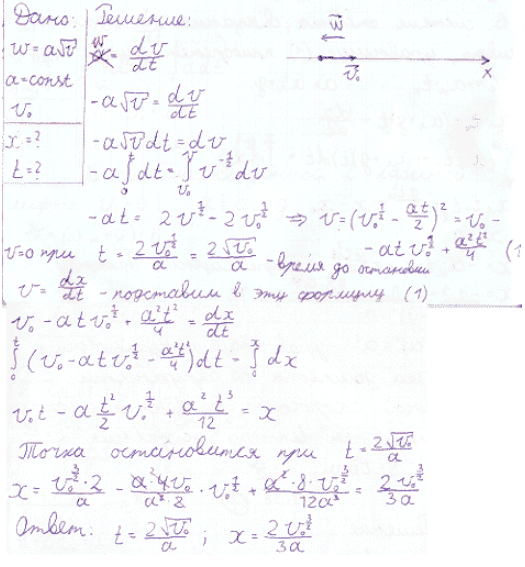 Дано: Решение:
w = a√v w = dv/dt
a = const
v₀ -a√v = dv/dt
x = ? -a√v dt = dv
t = ? -a∫₀ᵗ dt = ∫ᵥ₀ᵛ v^(-1/2) dv
w⃗ v⃗₀ x
-at = 2v^(1/2) - 2v₀^(1/2) ⇒ v = (v₀^(1/2) - at/2)² = v₀ -
- atv₀^(1/2) + a²t²/4 (1
v=0 при t = 2v₀^(1/2)/a = 2√v₀/a - время до остановки
v = dx/dt - подставим в эту формулу (1)
v₀ - atv₀^(1/2) + a²t²/4 = dx/dt
∫₀ᵗ (v₀ - atv₀^(1/2) - a²t²/4) dt = ∫₀ˣ dx
v₀t - a t²/2 v₀^(1/2) + a²t³/12 = x
Точка остановится при t = 2√v₀/a
x = v₀^(3/2)·2/a - a·4v₀/a²·2 · v₀^(1/2) + a²·8·v₀^(3/2)/12a³ = 2v₀^(3/2)/3a
Ответ: t = 2√v₀/a ; x = 2v₀^(3/2)/3a